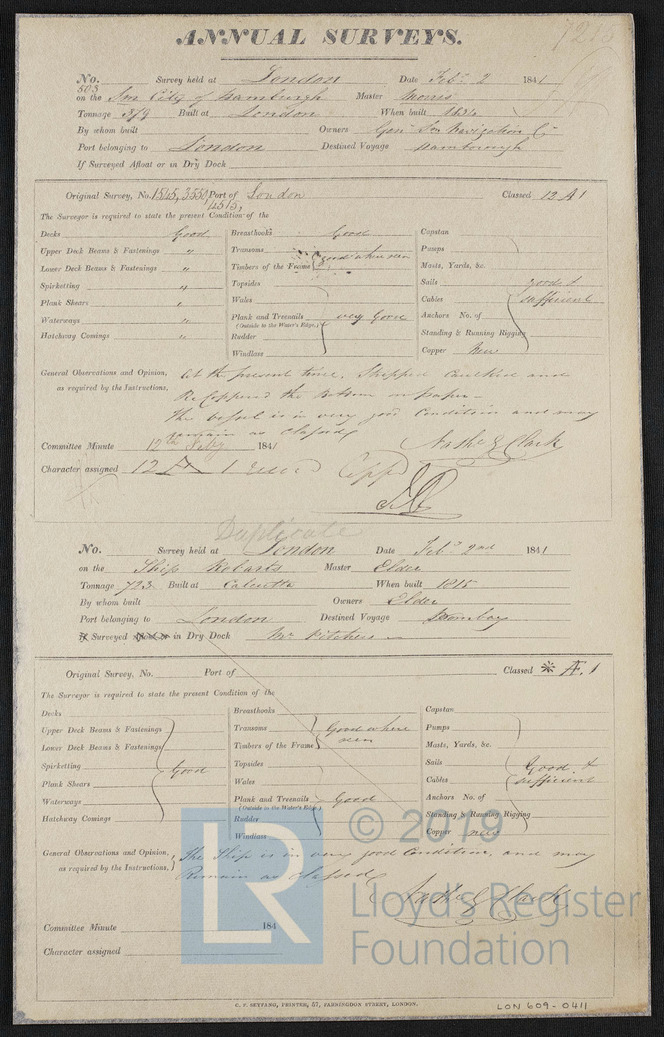 7213
ANNUAL SURVEYS.
No. 503 Survey held at London Date Feby 2 1841
on the Sm City of Hamburgh Master Morris
Tonnage Built at London When built 1834
By whom built Owners Genl Sn Navigation Co
Port belonging to London Destined Voyage Hamborough
If Surveyed Afloat or in Dry Dock
Original Survey, No. 1545, 3550, 4515, Port of London Classed 12 A 1
The Surveyor is required to state the present Condition of the
Decks Good Breasthooks Good Capstan
Upper Deck Beams & Fastenings " Transoms Good where seen Pumps
Lower Deck Beams & Fastenings " Timbers of the Frame Masts, Yards, &c.
Spirketting " Topsides Sails good &
Plank Shears " Wales Cables sufficient
Waterways " Plank and Treenails very Good Anchors No. of
(Outside to the Water's Edge.)
Hatchway Comings " Rudder Standing & Running Rigging
Windlass Copper New
General Observations and Opinion, At the present time, Stripped Caulked and
as required by the Instructions. ReCoppered the Bottom on paper
The vessel is in very good Condition and may
remain as Classed
Nathl G Clark
Committee Minute 12th Feby 1841
Character assigned 12 A 1 Coppd
Duplicate
No. Survey held at London Date Feby 2nd 1841
on the Ship Robarts Master Elder
Tonnage 723 Built at Calcutta When built 1815
By whom built Owners Elder
Port belonging to London Destined Voyage Bombay
If Surveyed Afloat or in Dry Dock Mr Pitchers
Original Survey, No. Port of Classed * Æ. 1
The Surveyor is required to state the present Condition of the
Decks Breasthooks Capstan
Upper Deck Beams & Fastenings Transoms Good where seen Pumps
Lower Deck Beams & Fastenings Timbers of the Frame Masts, Yards, &c.
Spirketting Good Topsides Sails Good &
Plank Shears Wales Cables sufficient
Waterways Plank and Treenails Good Anchors No. of
(Outside to the Water's Edge.)
Hatchway Comings Rudder Standing & Running Rigging
Windlass Copper new
General Observations and Opinion, The Ship is in very good Condition, and may
as required by the Instructions, Remain as Classed
Nathl G Clark
Committee Minute 184
Character assigned
C. F. SEYFANG, PRINTER, 57, FARRINGDON STREET, LONDON.
LON 609-0411
© 2019
LR
Lloyd's Register
Foundation